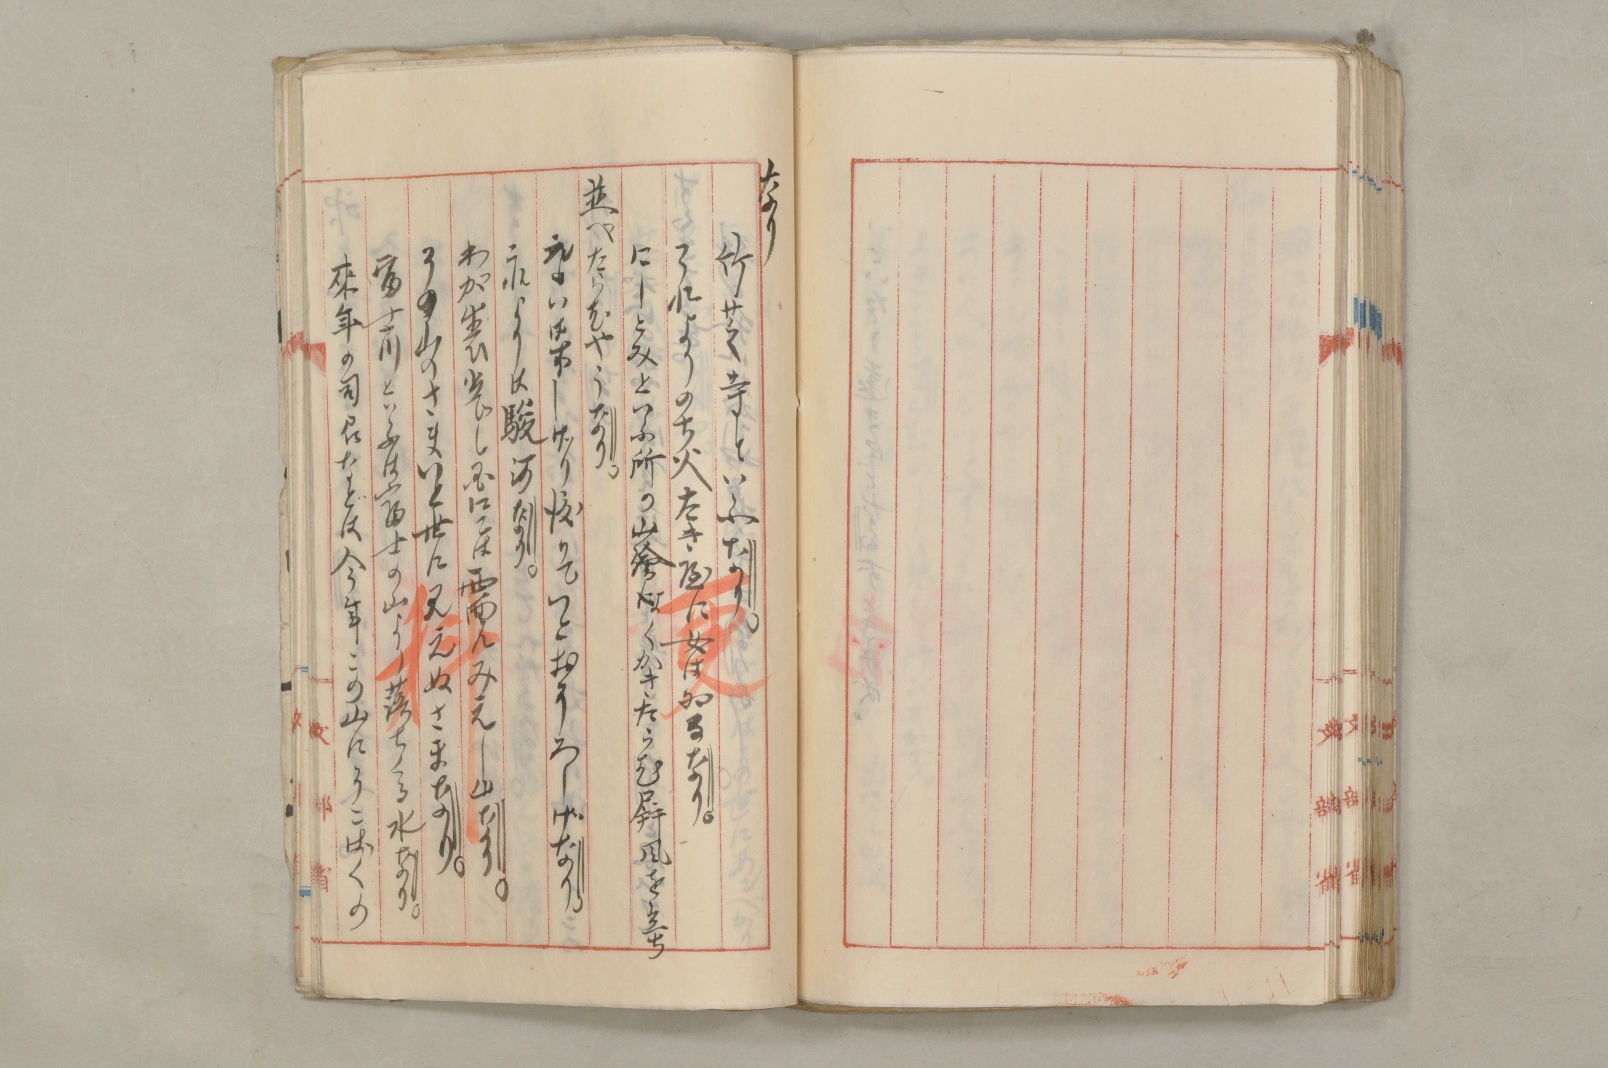 なり
竹芝寺といふなり。
それよりのち火たき屋に女はゐるなり。
にしとみといふ所の山繪よくかきたらむ屏風を立ち
並べたらむやうなり。
えもいはず茂り渡りていとおそろしげなり。
これよりは駿河なり。
わが生ひ出でし国にては西面にみえし山なり。
その山のさまいと世に見えぬさまなり。
富士川といふは富士の山より落ちたる水なり。
來年の司召などは今年この山にそこばくの
文部省